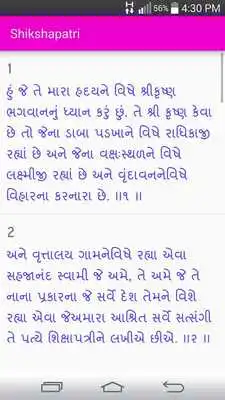 56% 4:30 PM
Shikshapatri
1
હું જે તે મારા હૃદયને વિષે શ્રીકૃષ્ણ
ભગવાનનું ધ્યાન કરું છું. તે શ્રી કૃષ્ણ કેવા
છે તો જેના ડાબા પડખાને વિષે રાધિકાજી
રહ્યાં છે અને જેના વક્ષઃસ્થળને વિષે
લક્ષ્મીજી રહ્યાં છે અને વૃંદાવનનેવિષે
વિહારના કરનારા છે. ॥૧ ॥
2
અને વૃત્તાલય ગામનેવિષે રહ્યા એવા
સહજાનંદ સ્વામી જે અમે, તે અમે જે તે
નાના પ્રકારના જે સર્વે દેશ તેમને વિશે
રહ્યા એવા જેઅમારા આશ્રિત સર્વે સત્સંગી
તે પત્યે શિક્ષાપત્રીને લખીએ છીએ. ॥૨ ॥